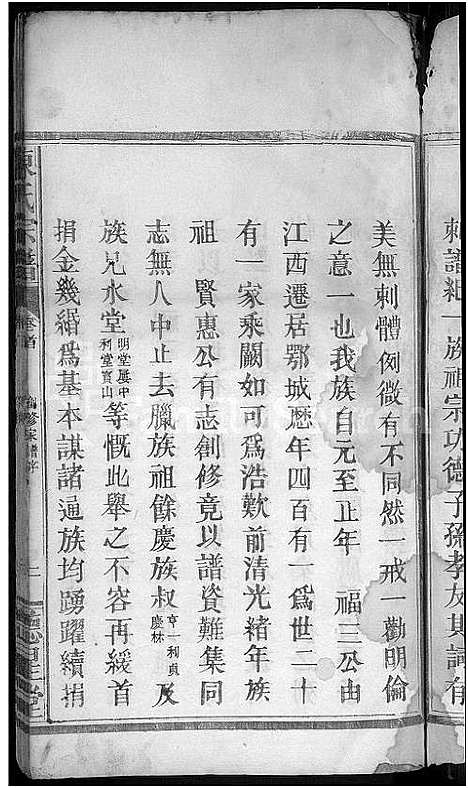 刺譜紀一族祖宗功德子孫孝友其詞有
美無刺體例微有不同然一戒一勸明倫
之意一也我族自元至止年　福三公由
江西遷居鄂城歷年四百有一為世二十
有一家乘闕如可為浩歎前清光緒年族
祖　賢惠公有志創修竟以譜資難集同
志無人中止去臘族祖餘慶族叔亨一利貞慶林及
族兄水堂明堂屢中利堂寶山等慨此舉之不容再緩首
捐金幾緡為基本謀諸通族均踴躍續捐
陳氏宗譜
卷首